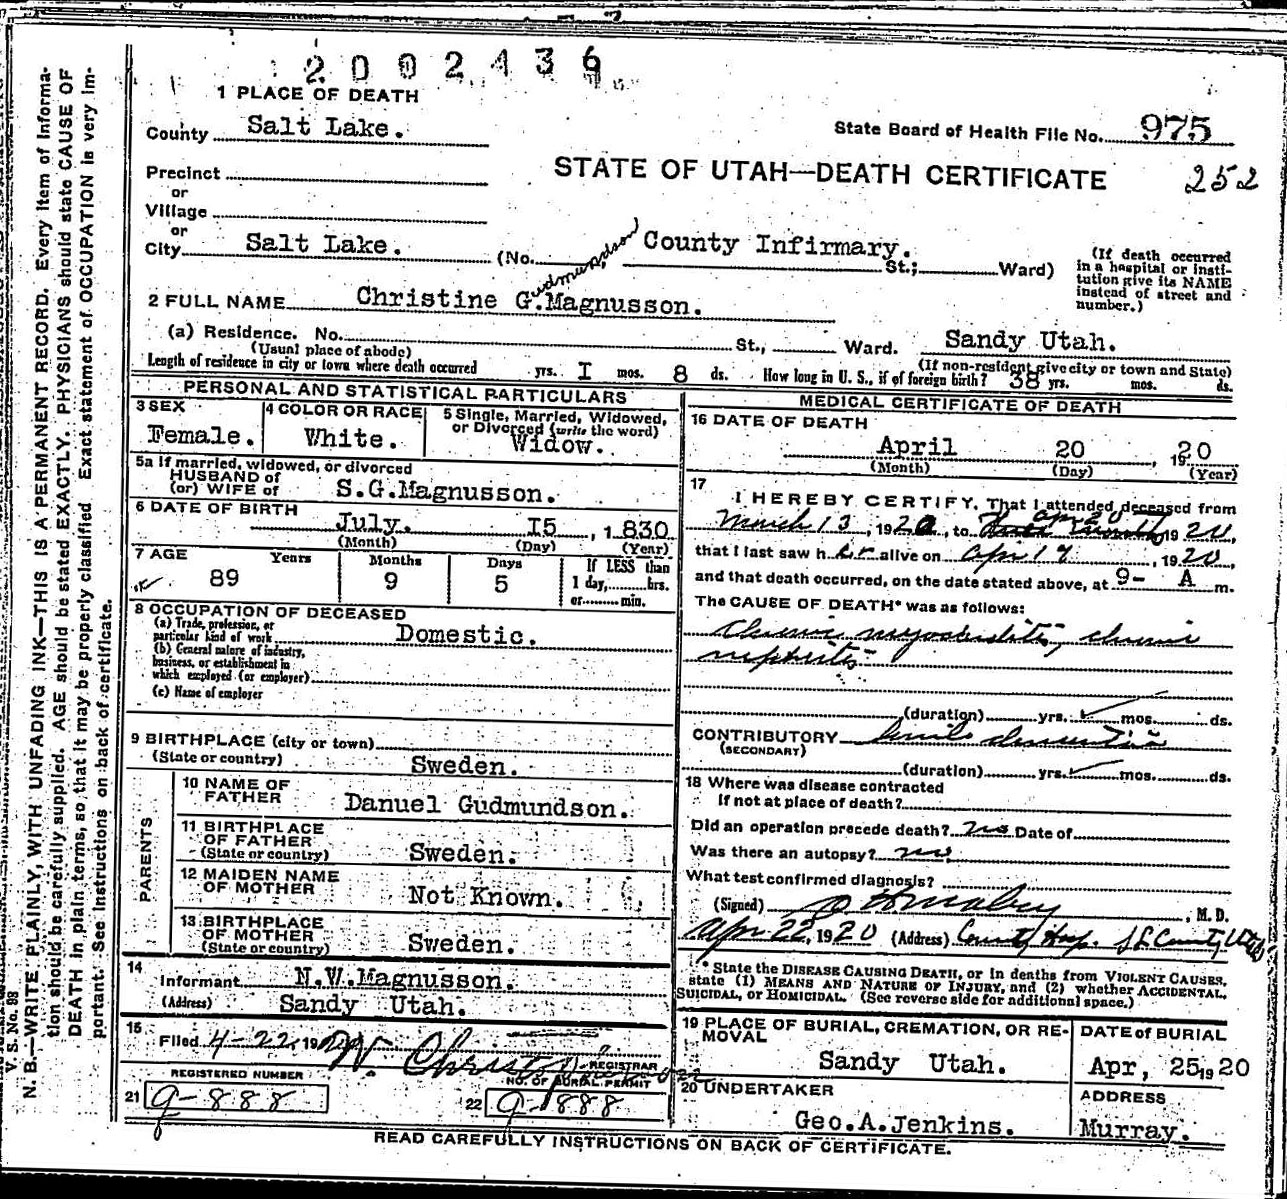 2002436
1 PLACE OF DEATH
County Salt Lake.
State Board of Health File No. 975
Precinct
or
Village
or
City Salt Lake.
STATE OF UTAH—DEATH CERTIFICATE
252
(No. County Infirmary. St.; Ward)
(If death occurred
in a hospital or insti-
tution give its NAME
instead of street and
number.)
Gudmundson
2 FULL NAME Christine G. Magnusson.
(a) Residence. No. St., Ward. Sandy Utah.
(Usual place of abode) (If non-resident give city or town and State)
Length of residence in city or town where death occurred yrs. I mos. 8 ds. How long in U. S., if of foreign birth? 38 yrs. mos. ds.
PERSONAL AND STATISTICAL PARTICULARS
3 SEX
Female.
4 COLOR OR RACE
White.
5 Single, Married, Widowed,
or Divorced (write the word)
Widow.
5a If married, widowed, or divorced
HUSBAND of
(or) WIFE of S.G.Magnusson.
6 DATE OF BIRTH
July. I5, 1830
(Month) (Day) (Year)
7 AGE Years Months Days If LESS than
1 day, hrs.
or min.
89 9 5
8 OCCUPATION OF DECEASED
(a) Trade, profession, or
particular kind of work Domestic.
(b) General nature of industry,
business, or establishment in
which employed (or employer)
(c) Name of employer
9 BIRTHPLACE (city or town)
(State or country) Sweden.
PARENTS
10 NAME OF
FATHER Danuel Gudmundson.
11 BIRTHPLACE
OF FATHER
(State or country) Sweden.
12 MAIDEN NAME
OF MOTHER Not Known.
13 BIRTHPLACE
OF MOTHER
(State or country) Sweden.
14
Informant N.W.Magnusson.
(Address) Sandy Utah.
15
Filed 4-22, 19 W. Christopherson
REGISTRAR
REGISTERED NUMBER
21 9-888
NO. OF BURIAL PERMIT
22 9-888
MEDICAL CERTIFICATE OF DEATH
16 DATE OF DEATH
April 20, 1920
(Month) (Day) (Year)
17
I HEREBY CERTIFY, That I attended deceased from
March 13, 1920, to apr 20 1920,
that I last saw her alive on apr 19, 1920,
and that death occurred, on the date stated above, at 9- A m.
The CAUSE OF DEATH* was as follows:
chronic myocarditis, chronic
nephritis
(duration) yrs. mos. ds.
CONTRIBUTORY senile dementia
(SECONDARY)
(duration) yrs. mos. ds.
18 Where was disease contracted
If not at place of death?
Did an operation precede death? no Date of
Was there an autopsy? no
What test confirmed diagnosis?
(Signed) , M. D.
Apr 22, 1920 (Address) County Hosp. S L County Utah
* State the DISEASE CAUSING DEATH, or in deaths from VIOLENT CAUSES,
state (1) MEANS AND NATURE OF INJURY, and (2) whether ACCIDENTAL,
SUICIDAL, or HOMICIDAL. (See reverse side for additional space.)
19 PLACE OF BURIAL, CREMATION, OR RE-
MOVAL
Sandy Utah.
DATE of BURIAL
Apr, 25, 1920
20 UNDERTAKER
Geo.A.Jenkins.
ADDRESS
Murray.
READ CAREFULLY INSTRUCTIONS ON BACK OF CERTIFICATE.
V. S. No. 93
N. B.—WRITE PLAINLY, WITH UNFADING INK—THIS IS A PERMANENT RECORD. Every item of informa-
tion should be carefully supplied. AGE should be stated EXACTLY. PHYSICIANS should state CAUSE OF
DEATH in plain terms, so that it may be properly classified. Exact statement of OCCUPATION is very im-
portant. See instructions on back of certificate.